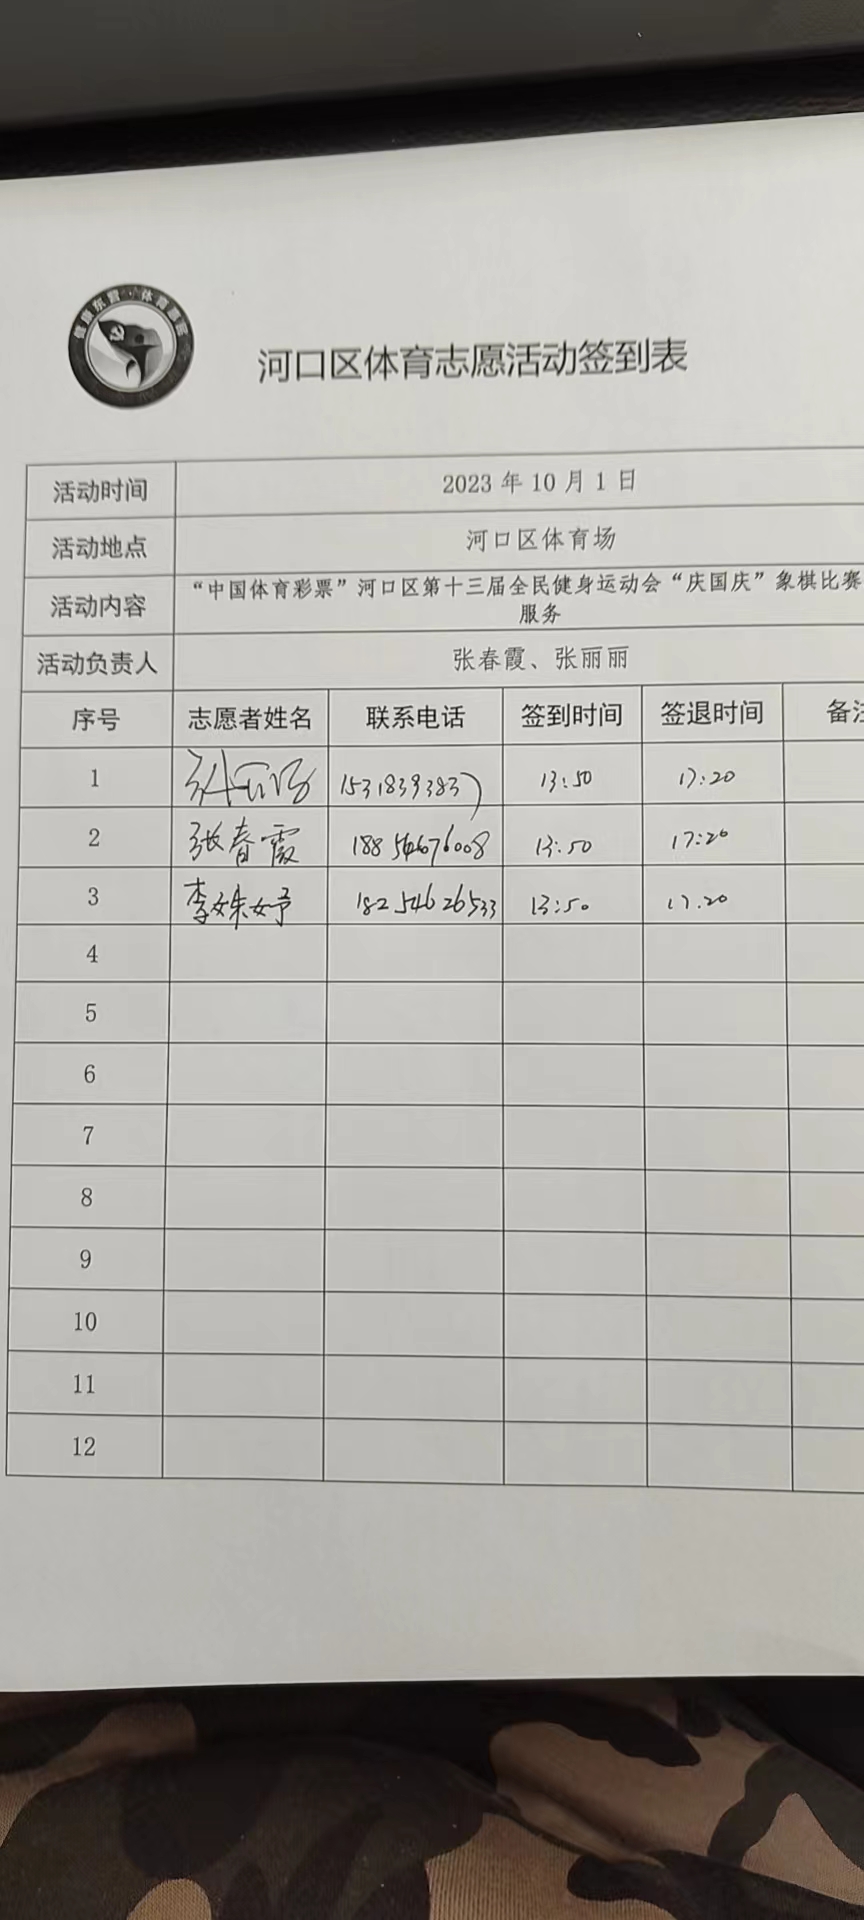 健康东营·体育惠民
河口区体育志愿活动签到表
活动时间 2023 年 10 月 1 日
活动地点 河口区体育场
活动内容 “中国体育彩票”河口区第十三届全民健身运动会“庆国庆”象棋比赛
服务
活动负责人 张春霞、张丽丽
序号 志愿者姓名 联系电话 签到时间 签退时间 备注
1 15318393837 13:50 17:20
2 张春霞 18854676008 13:50 17:20
3 李姝妤 18254626533 13:50 17:20
4
5
6
7
8
9
10
11
12